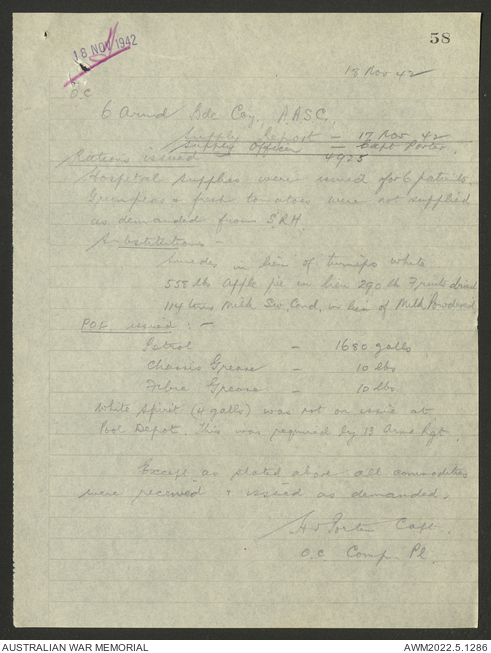 58
18 NOV 1942
18 Nov 42
O.C
6 Armd Bde Coy., AASC.,
Supply Report - 17 Nov. 42
Supply Officer - Capt Porter.
Rations issued 4925
Hospital supplies were issued for 6 patients.
Green peas & fresh tomatoes were not supplied
as demanded from S.R.H.
Substitutions -
Swedes in lieu of turnips white
558 lbs apple pie in lieu 290 lb Fruits dried
114 tins Milk Sw. Cond. in lieu of Milk Powdered
POL issued : -
Petrol - 1680 galls
Chassis Grease - 10 lbs
Fibre Grease - 10 lbs
White spirit (4 galls) was not on issue at
Pool Depot. This was required by 13 Armd Rgt.
Except as stated above all commodities
were received & issued as demanded.
Porter Capt.
O.C. Comp. Pl.
AUSTRALIAN WAR MEMORIAL
AWM2022.5.1286